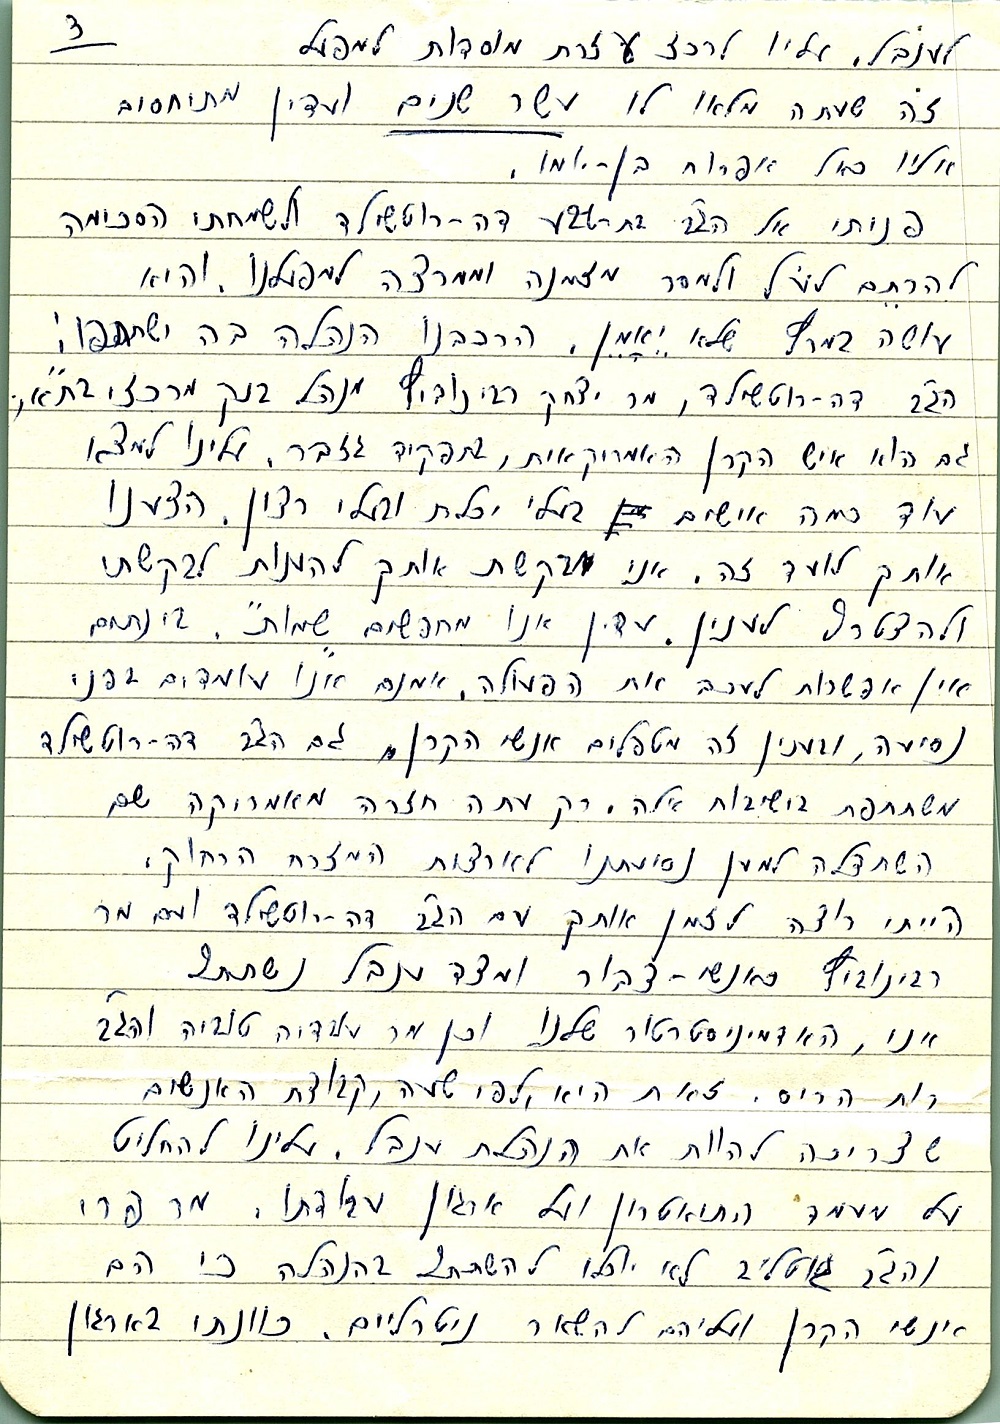 3
לענבל. עליו לרכז עזרת מוסדות למפעל
זה שעתה מלאו לו עשר שנים ועדין מתיחסים
אליו כאל אפרוח בן-יומו.
פניתי אל הגב' בת-שבע דה-רוטשילד ולשמחתי הסכימה
להרתם לעול ולמסר מזמנה וממרצה למפעלנו. והיא
עושה במרץ שלא יֵאָמֵן. הרכבנו הנהלה בה ישתתפו:
הגב' דה-רוטשילד, מר יצחק רבינוביץ מנהל בנק מרכזי בת"א,
גם הוא איש הקרן האמריקאית, בתפקיד גזבר. עלינו למצא
עוד כמה אישים בעלי יכלת ובעלי רצון. הצענו
אותך לועד זה. אני מבקשת אותך להענות לבקשתי
ולהצטרף לענין. עדין אנו מחפשים "שמות". בינתים
אין אפשרות לעכב את הפעולה. אמנם אנו עומדים בפני
נסיעה, ובענין זה מטפלים אנשי הקרן. גם הגב' דה-רוטשילד
משתתפת בישיבות אלה. רק עתה חזרה מאמריקה שם
השתדלה למען נסיעתנו לארצות המזרח הרחוק.
הייתי רוצה לזמן אותך עם הגב' דה-רוטשילד ועם מר
רבינוביץ כאנשי-צבור ומצד ענבל נשתתף
אני, האדמיניסטרטור שלנו וכן מר עובדיה טוביה והגב'
רות הריס. זאת היא, לפי שעה, קבוצת האנשים
שצריכה להוות את הנהלת ענבל. עלינו להחליט
על מעמד התיאטרון ועל ארגון עבודתו. מר פרי
והגב' גוטליב לא יוכלו להשתתף בהנהלה כי הם
אנשי הקרן ועליהם להשאר ניטרליים. כוונתי בארגון